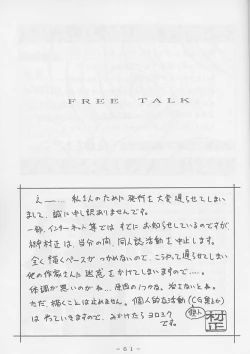 FREE TALK
え〜……、私さんのために発行を大変遅らせてしまい
まして、誠に申し訳ありませんです。
一部、インターネット等ではすでにお知らせしているのですが
村正は、当分の間、同人誌活動を中止します。
全く描くペースがつかめないので、こうやって遅らせてしまい
他の作家さんに迷惑をかけてしまいますので……。
体調が悪いのかね… 原因のつかな、治さないとね。
ただ、描くことは止めません。個人的な活動(CG集とか)
はやっていきますので、みかけたらヨロスク
です。
-61-